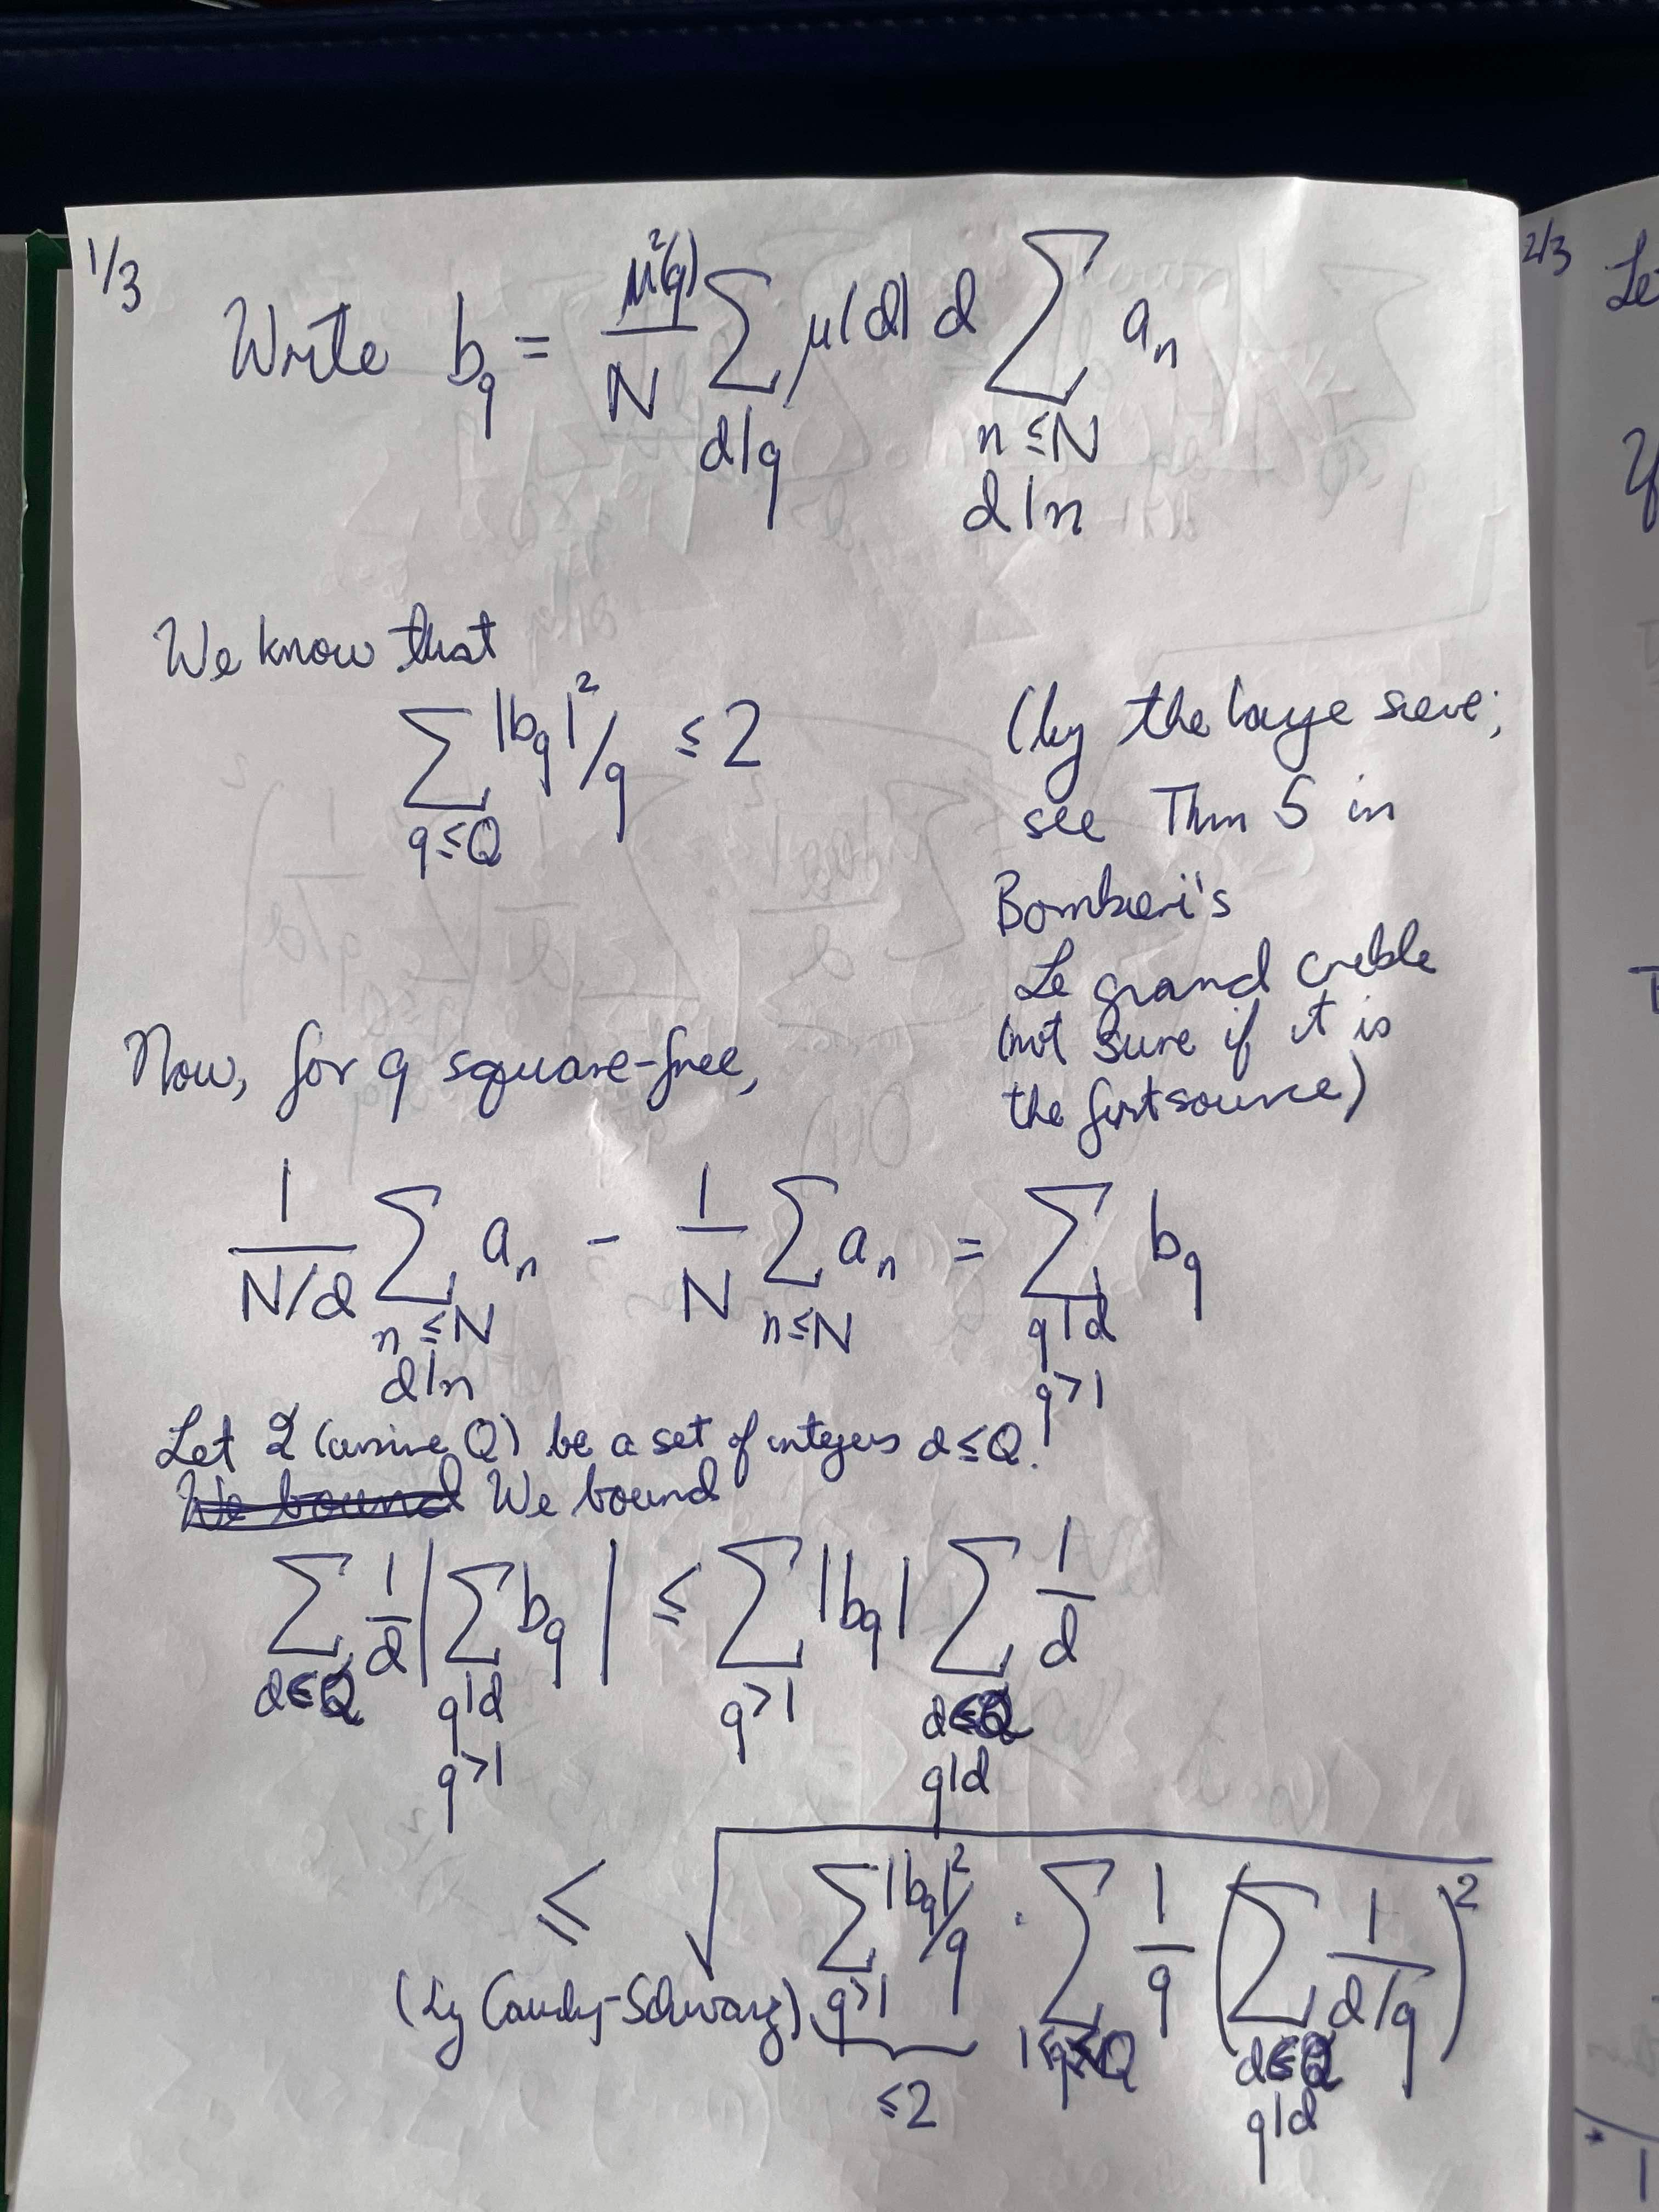 1/3
Write b_q = μ²(q)/N ∑_{d|q} μ(d) d ∑_{n≤N, d|n} a_n
We know that
∑_{q≤Q} |b_q|²/q ≤ 2
(by the large sieve;
see Thm 5 in
Bombieri's
Le grand crible
(not sure if it is
the first source)
Now, for q square-free,
1/(N/d) ∑_{n≤N, d|n} a_n - 1/N ∑_{n≤N} a_n = ∑_{q|d, q>1} b_q
Let 𝒬 (cursive Q) be a set of integers d≤Q.
We bound We bound
∑_{d∈𝒬} 1/d |∑_{q|d, q>1} b_q| ≤ ∑_{q>1} |b_q| ∑_{d∈𝒬, q|d} 1/d
≤ √(∑_{q>1} |b_q|²/q · ∑_{1<q≤Q} 1/q (∑_{d∈𝒬, q|d} 1/(d/q))²)
(by Cauchy-Schwarz)
≤2
2/3
Le